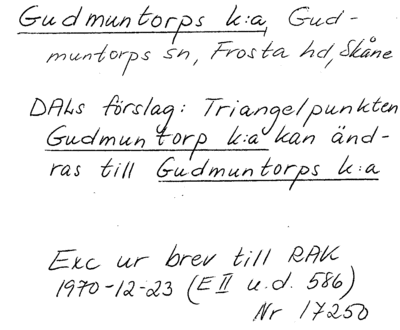 Gudmuntorps k:a, Gud-
muntorps sn, Frosta hd, Skåne
DALs förslag: Triangelpunkten
Gudmuntorp k:a kan änd-
ras till Gudmuntorps k:a
Exc ur brev till RAK
1970-12-23 (E II u.d. 586)
Nr 17250